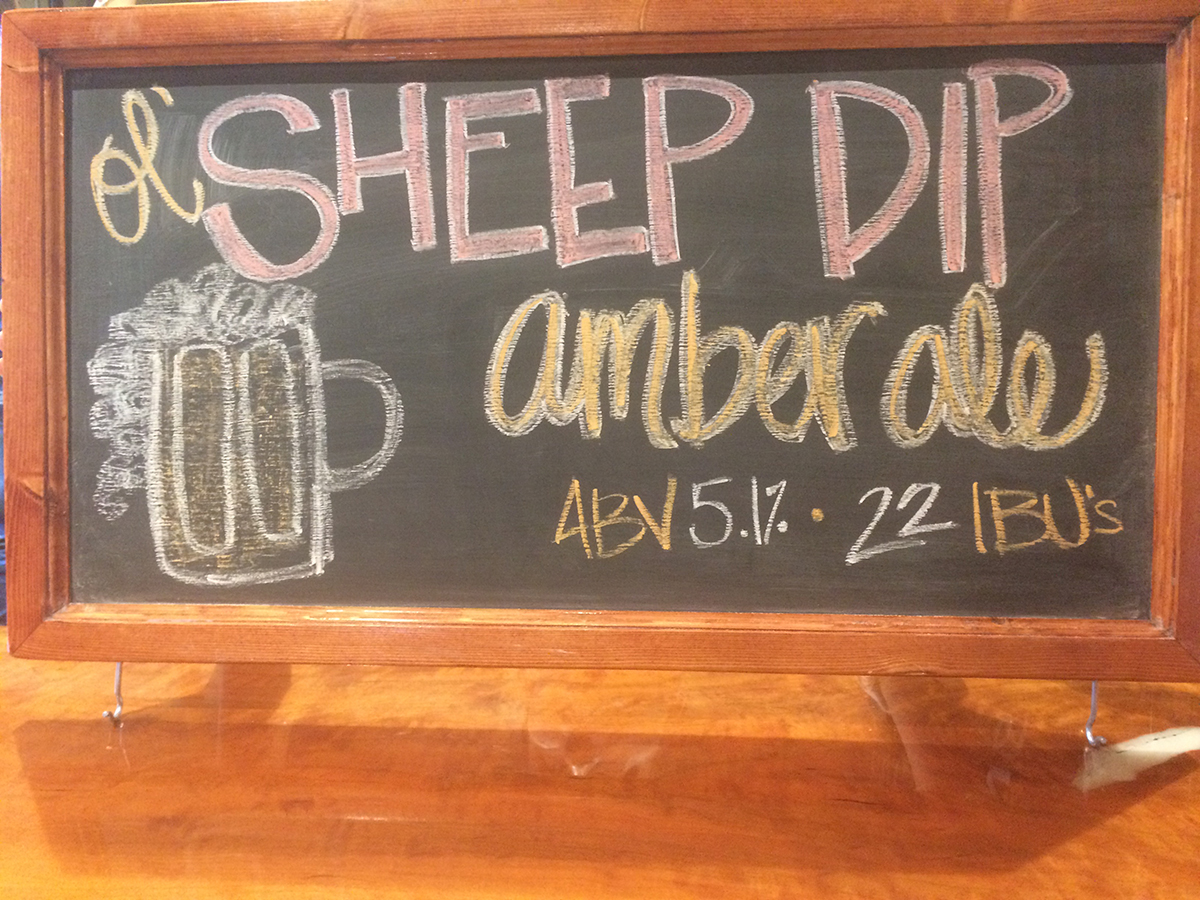 ol' SHEEP DIP
amber ale
ABV 5.1% • 22 IBU's